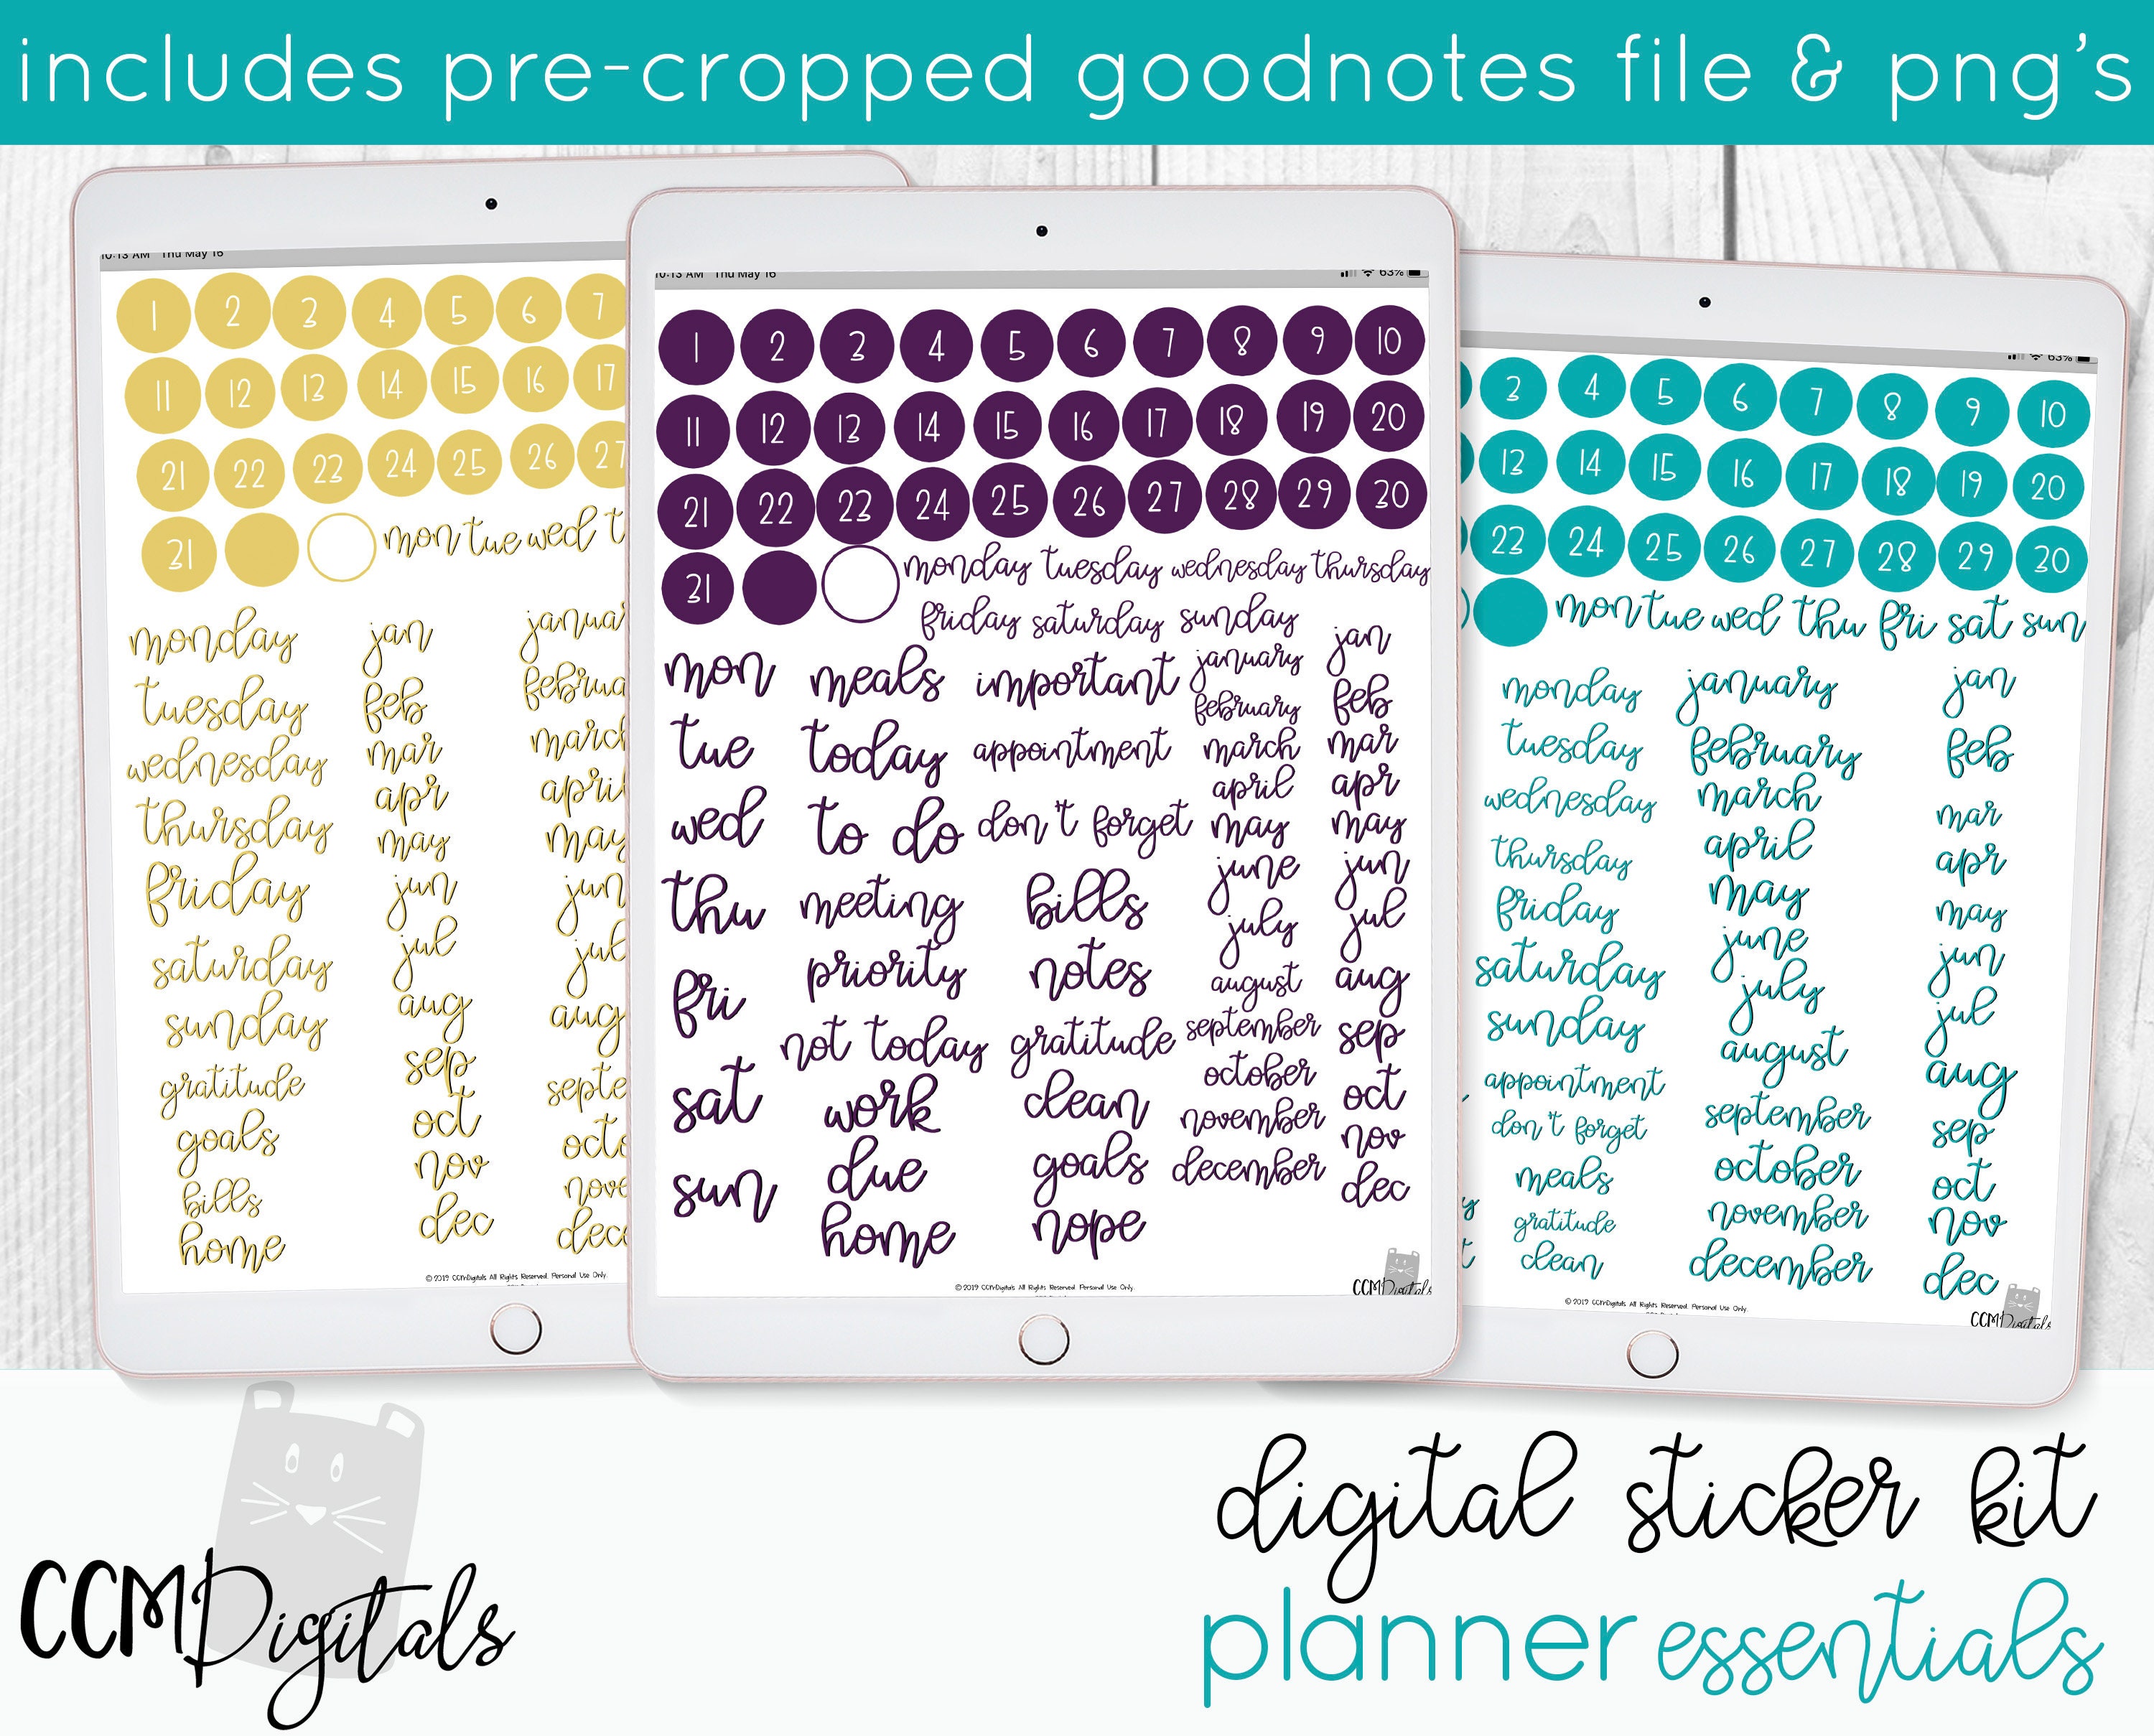 includes pre-cropped goodnotes file & png's
10:13 AM Thu May 16
1 2 3 4 5 6 7
11 12 13 14 15 16 17
21 22 23 24 25 26 27
31 mon tue wed t
monday jan januar
tuesday feb februa
wednesday mar march
thursday apr april
friday may may
saturday jun jun
sunday jul jul
gratitude aug aug
goals sep septe
bills oct octo
home nov nove
dec dece
© 2019 CCMDigitals All Rights Reserved. Personal Use Only.
10:13 AM Thu May 16 63%
1 2 3 4 5 6 7 8 9 10
11 12 13 14 15 16 17 18 19 20
21 22 23 24 25 26 27 28 29 30
31 monday tuesday wednesday thursday
friday saturday sunday
mon meals important january jan
tue today appointment february feb
wed to do don't forget march mar
thu meeting bills april apr
fri priority notes may may
sat not today gratitude june jun
sun work clean july jul
due goals august aug
home nope september sep
october oct
november nov
december dec
© 2019 CCMDigitals All Rights Reserved. Personal Use Only.
CCMDigitals
63%
3 4 5 6 7 8 9 10
13 14 15 16 17 18 19 20
23 24 25 26 27 28 29 30
mon tue wed thu fri sat sun
monday january jan
tuesday february feb
wednesday march mar
thursday april apr
friday may may
saturday june jun
sunday july jul
appointment august aug
don't forget september sep
meals october oct
gratitude november nov
clean december dec
© 2019 CCMDigitals All Rights Reserved. Personal Use Only.
CCMDigitals
CCMDigitals
digital sticker kit
planner essentials